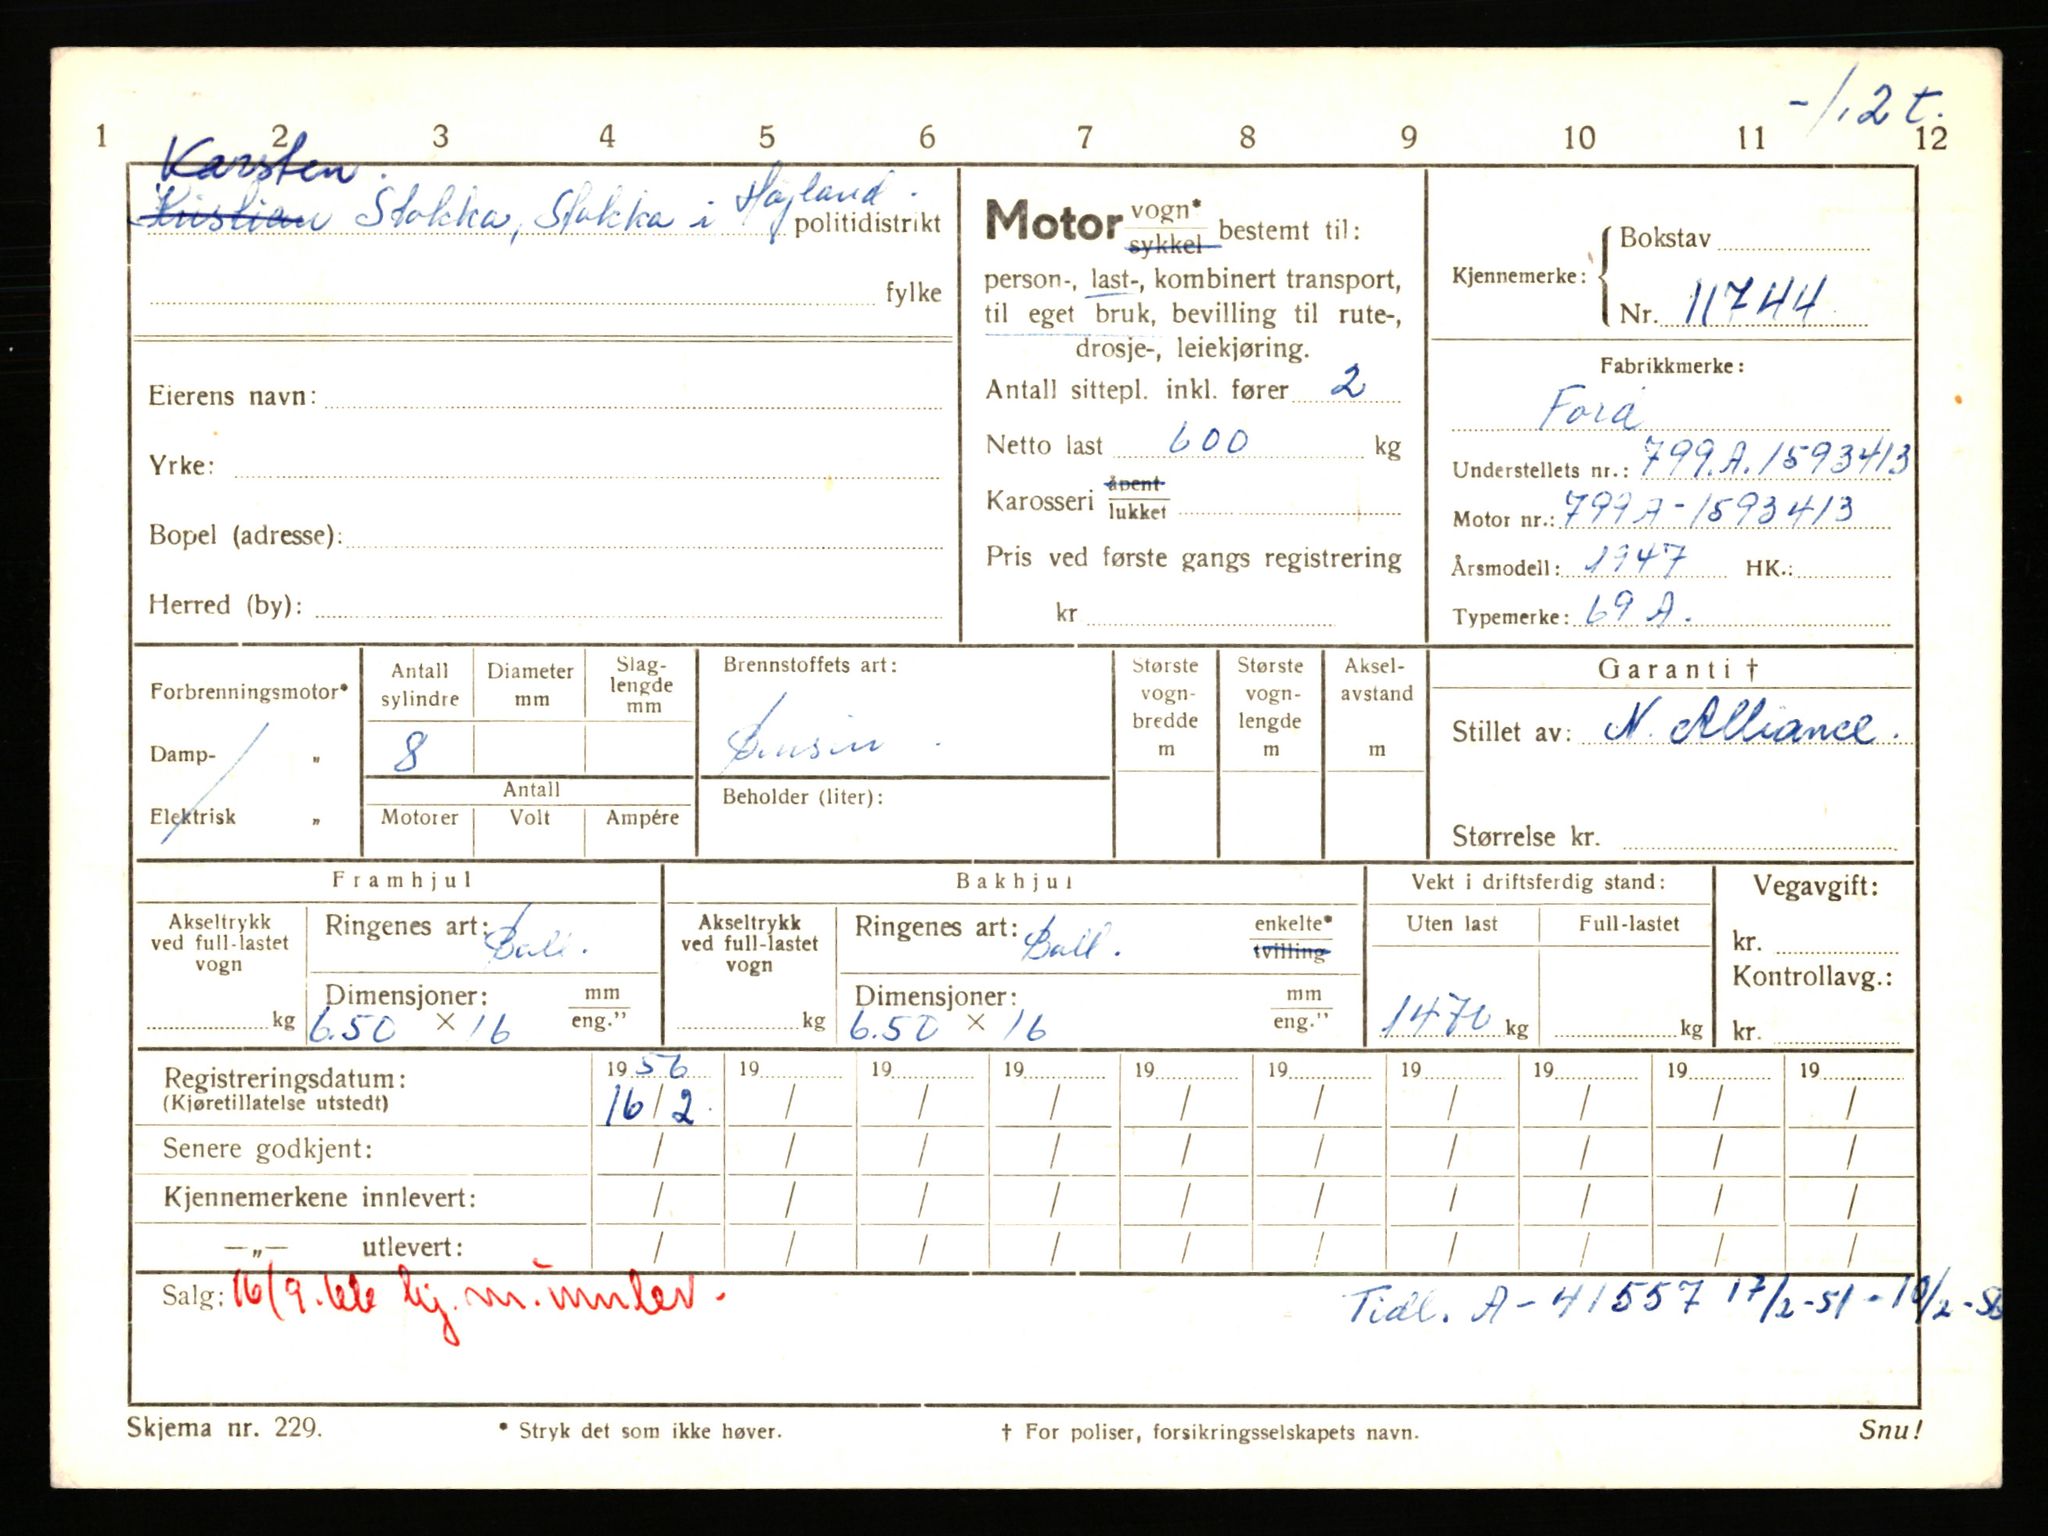 -/12 t.
1 2 3 4 5 6 7 8 9 10 11 12
Karsten.
Kristian Stokka, Stokka i Høyland. politidistrikt
fylke
Eierens navn:
Yrke:
Bopel (adresse):
Herred (by):
Motor vogn* sykkel bestemt til:
person-, last-, kombinert transport,
til eget bruk, bevilling til rute-,
drosje-, leiekjøring.
Antall sittepl. inkl. fører 2
Netto last 600 kg
Karosseri åpent lukket
Pris ved første gangs registrering
kr
Kjennemerke: Bokstav
Nr. 11744
Fabrikkmerke:
Ford
Understellets nr.: 799.A.1593413
Motor nr.: 799A-1593413
Årsmodell: 1947 HK.:
Typemerke: 69 A.
Forbrenningsmotor*
Damp- „
Elektrisk „
Antall sylindre
8
Diameter mm
Slag-lengde mm
Antall
Motorer Volt Ampére
Brennstoffets art:
Bensin.
Beholder (liter):
Største vogn-bredde m
Største vogn-lengde m
Aksel-avstand m
Garanti †
Stillet av: N. Alliance.
Størrelse kr.
Framhjul
Akseltrykk ved full-lastet vogn
kg
Ringenes art: Ball.
Dimensjoner: mm eng."
6.50 × 16
Bakhjul
Akseltrykk ved full-lastet vogn
kg
Ringenes art: Ball. enkelte* tvilling
Dimensjoner: mm eng."
6.50 × 16
Vekt i driftsferdig stand:
Uten last Full-lastet
1470 kg kg
Vegavgift:
kr.
Kontrollavg.:
kr.
Registreringsdatum: 1956 19 19 19 19 19 19 19 19 19
(Kjøretillatelse utstedt) 16/2. / / / / / / / / /
Senere godkjent: / / / / / / / / / /
Kjennemerkene innlevert: / / / / / / / / / /
—„— utlevert: / / / / / / / / / /
Salg: 16/9.66 kj.m. innlev.
Tidl. A-41557 17/2-51-10/2-56
Skjema nr. 229.
* Stryk det som ikke høver.
† For poliser, forsikringsselskapets navn.
Snu!